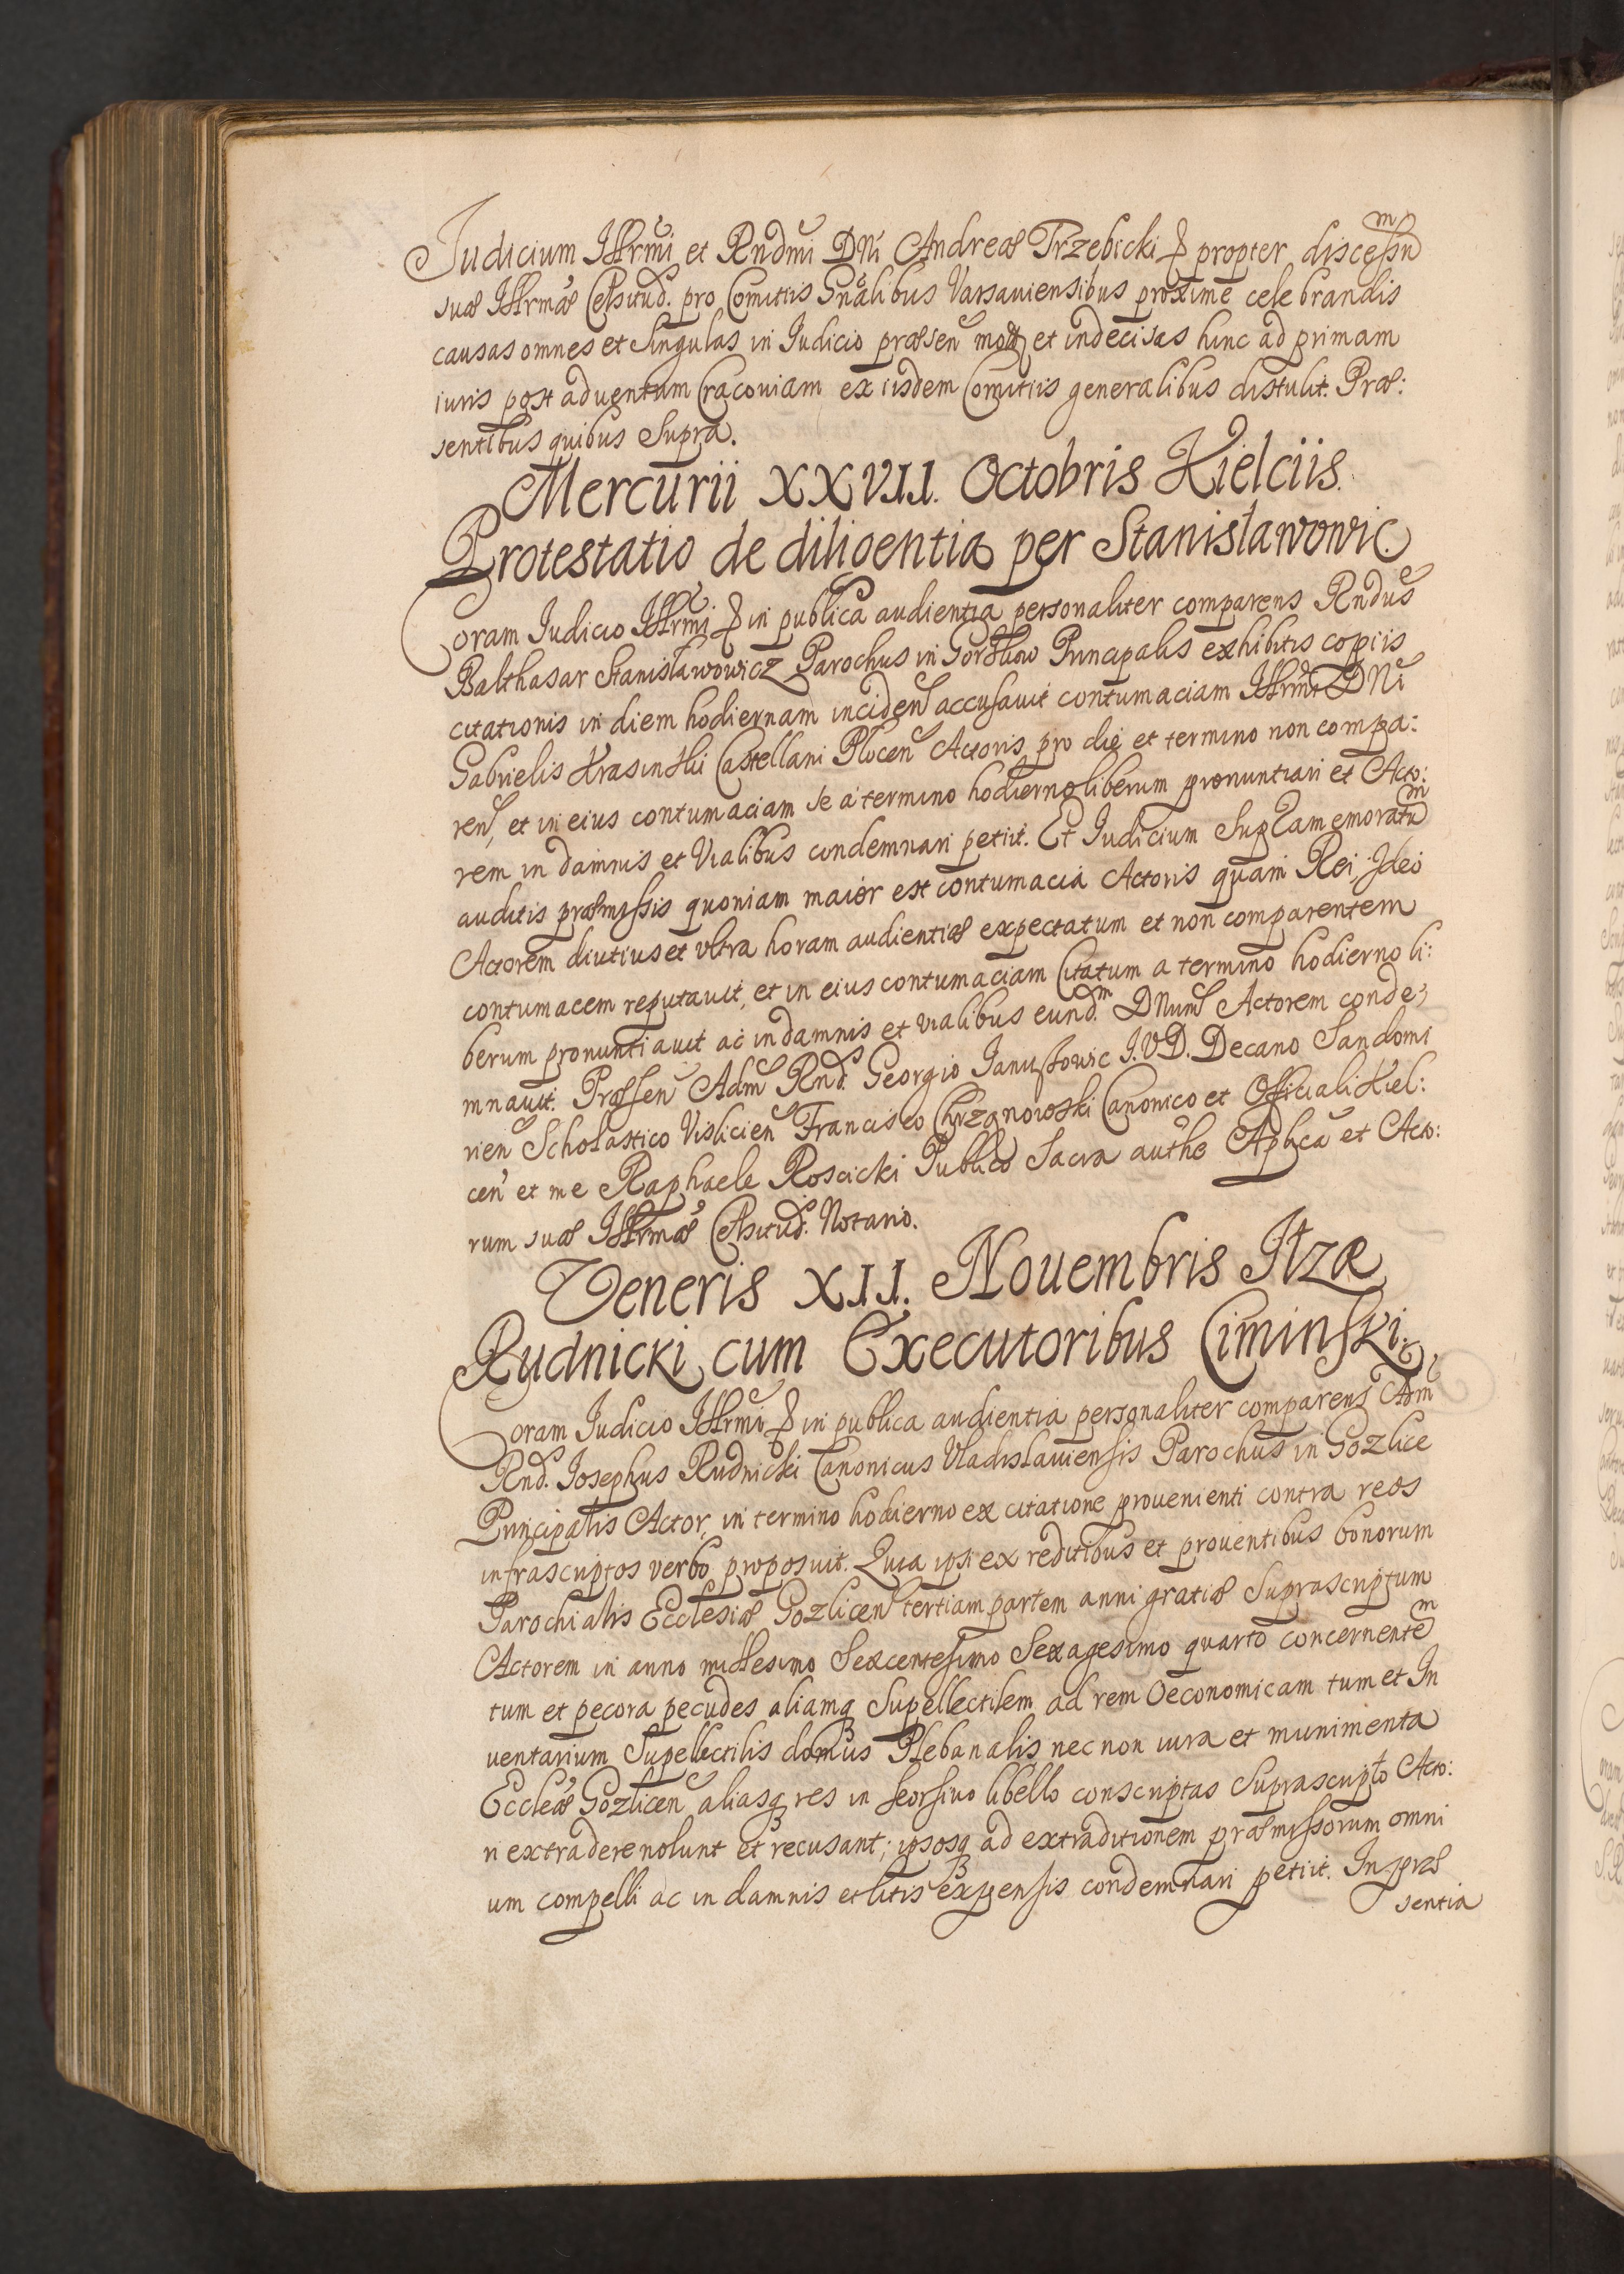 Judicium Illrmi et Rndmi DNi Andreæ Trzebicki & propter discessum
suæ Illrmæ Celsitud. pro Comitiis Gnalibus Varsauiensibus proxime celebrandis
causas omnes et Singulas in Iudicio præsen motas et indecisas hinc ad primam
iuris post aduentum Cracouiam ex iisdem Comitiis generalibus distulit. Præ:
sentibus quibus Supra.
Mercurii XXVII. Octobris Kielciis.
Protestatio de diligentia per Stanisławowic
Coram Iudicio Illrmi & in publica audientia personaliter comparens Rndus
Balthasar Stanisławowicz Parochus in Principalis exhibitis copiis
citationis in diem hodiernam inciden accusauit contumaciam Illrmi DNi
Gabrielis Krasinskii Castellani Plocen Actoris pro die et termino non compa:
ren, et in eius contumaciam se a termino hodierno liberum pronuntiari et Acto:
rem in damnis et Vialibus condemnari petiit. Et Iudicium Supramemoratum
auditis præmissis quoniam maior est contumacia Actoris quam Rei, Ideo
Actorem diutius et vltra horam audientiæ expectatum et non comparentem
contumacem reputauit, et in eius contumaciam Citatum a termino hodierno li:
berum pronuntiauit ac in damnis et vialibus eund.m DNum Actorem conde:
mnauit. Præsen Adm Rnd. Georgio Ianuszowic I.V.D. Decano Sandomi
rien Scholastico Vislicien Francisco Chrzanowski Canonico et Officiali Kiel:
cen et me Raphaele Roscicki Publico Sacra authe Aplica et Acto:
rum suæ Illrmæ Celsitud. Notario.
Veneris XII. Nouembris Iłzæ
Rudnicki cum Executoribus Ciminski.
Coram Iudicio Illrmi & in publica audientia personaliter comparens Adm
Rnd. Iosephus Rudnicki Canonicus Vladislauiensis Parochus in Gozlice
Principalis Actor, in termino hodierno ex citatione prouenienti contra reos
infrascriptos verbo proposuit. Quia ipsi ex reditibus et prouentibus bonorum
Parochialis Ecclesiæ Gozlicen tertiam partem anni gratiæ Suprascriptum
Actorem in anno millesimo Sexcentesimo Sexagesimo quarto concernentem
tum et pecora pecudes aliamq Supellectilem ad rem Oeconomicam tum et In
uentarium Supellectilis domus Plebanalis nec non iura et munimenta
Eccleæ Gozlicen aliasq res in seorsiuo libello conscriptas Suprascripto Acto:
ri extradere nolunt et recusant; ipsosq ad extraditionem præmissorum omni
um compelli ac in damnis et litis expensis condemnari petiit. In præ
sentia